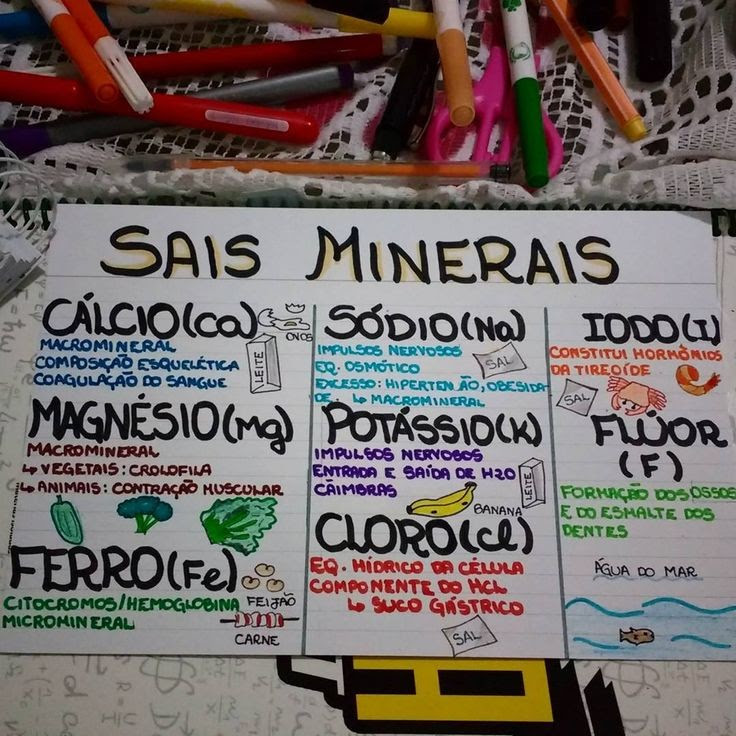 SAIS MINERAIS
CÁLCIO(Ca)
OVOS
MACROMINERAL
COMPOSIÇÃO ESQUELÉTICA
COAGULAÇÃO DO SANGUE
LEITE
MAGNÉSIO(Mg)
MACROMINERAL
↳ VEGETAIS: CROLOFILA
↳ ANIMAIS: CONTRAÇÃO MUSCULAR
FERRO(Fe)
CITOCROMOS/HEMOGLOBINA
MICROMINERAL
FEIJÃO
CARNE
SÓDIO(Na)
IMPULSOS NERVOSOS
EQ. OSMÓTICO
EXCESSO: HIPERTEN ÃO, OBESIDA
DE. ↳ MACROMINERAL
SAL
POTÁSSIO(K)
IMPULSOS NERVOSOS
ENTRADA E SAÍDA DE H2O
CÂIMBRAS
BANANA
LEITE
CLORO(Cl)
EQ. HÍDRICO DA CÉLULA
COMPONENTE DO HCL
↳ SUCO GÁSTRICO
SAL
IODO(I)
CONSTITUI HORMÔNIOS
DA TIREOÍDE
SAL
FLÚOR
(F)
FORMAÇÃO DOS OSSOS
E DO ESMALTE DOS
DENTES
ÁGUA DO MAR